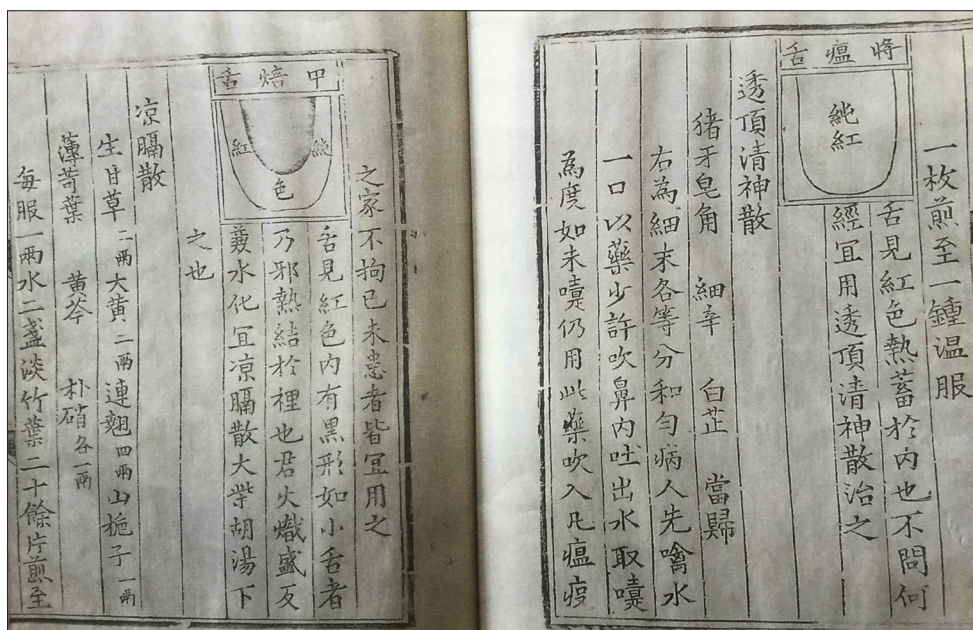 一枚煎至一鍾温服
將瘟舌
純紅
舌見紅色熱蓄於内也不問何
經宜用透頂清神散治之
透頂清神散
猪牙皂角 細辛 白芷 當歸
右為細末各等分和匀病人先噙水
一口以藥少許吹鼻内吐出水取嚏
為度如未嚏仍用此藥吹入凡瘟疫
之家不拘已未患者皆宜用之
甲焙舌
純紅
色
舌見紅色内有黑形如小舌者
乃邪熱結於裡也君火熾盛反
兼水化宜凉膈散大柴胡湯下
之也
凉膈散
生甘草二兩大黄二兩連翹四兩山梔子一兩
薄苛葉 黄芩 朴硝各一兩
每服一兩水二盞淡竹葉二十餘片煎至